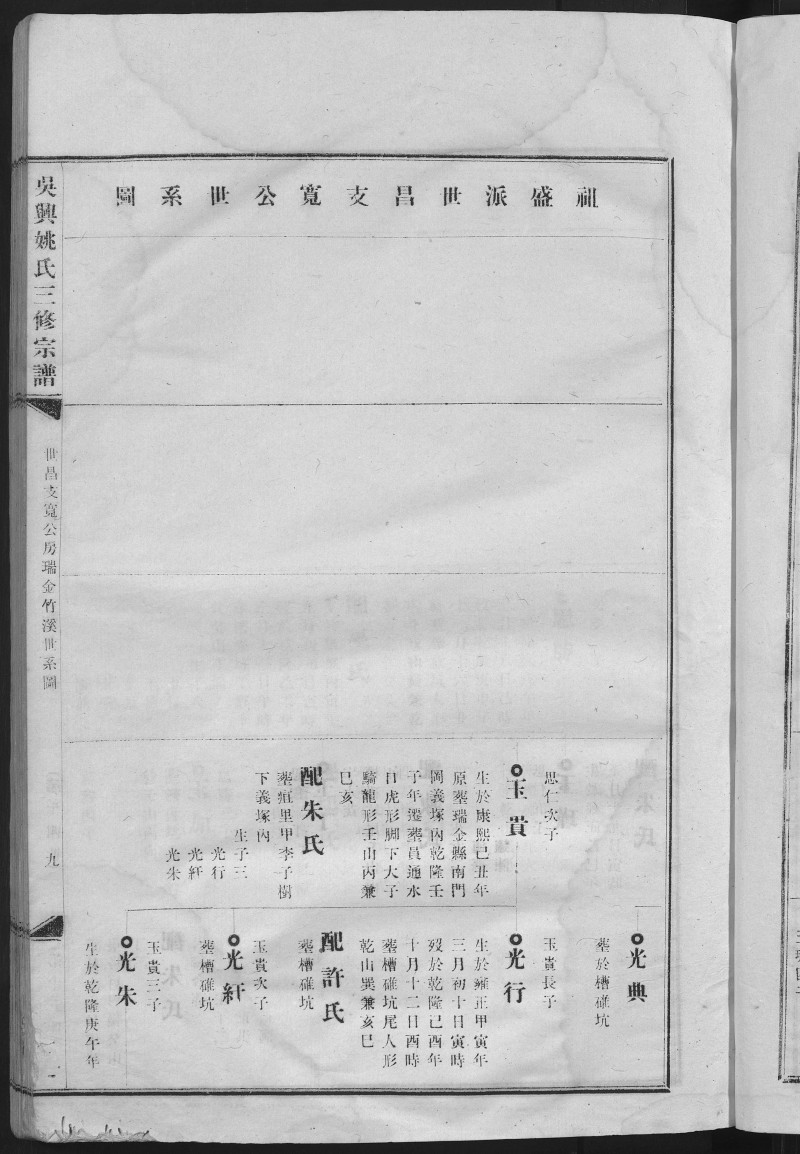 祖盛派世昌支寬公世系圖
思仁次子
玉貴
生於康熙己丑年
原塟瑞金縣南門
岡義塚內乾隆壬
子年遷塟員通水
口虎形脚下大子
騎龍形壬山丙兼
巳亥
配朱氏
塟疽里甲李子樹
下義塚內
生子三
光行
光紆
光朱
光典
塟於槽碓坑
玉貴長子
光行
生於雍正甲寅年
三月初十日寅時
歿於乾隆己酉年
十月十二日酉時
塟槽碓坑尾人形
乾山巽兼亥巳
配許氏
塟槽碓坑
玉貴次子
光紆
塟槽碓坑
玉貴三子
光朱
生於乾隆庚午年
吳興姚氏三修宗譜
世昌支寬公房瑞金竹溪世系圖
九